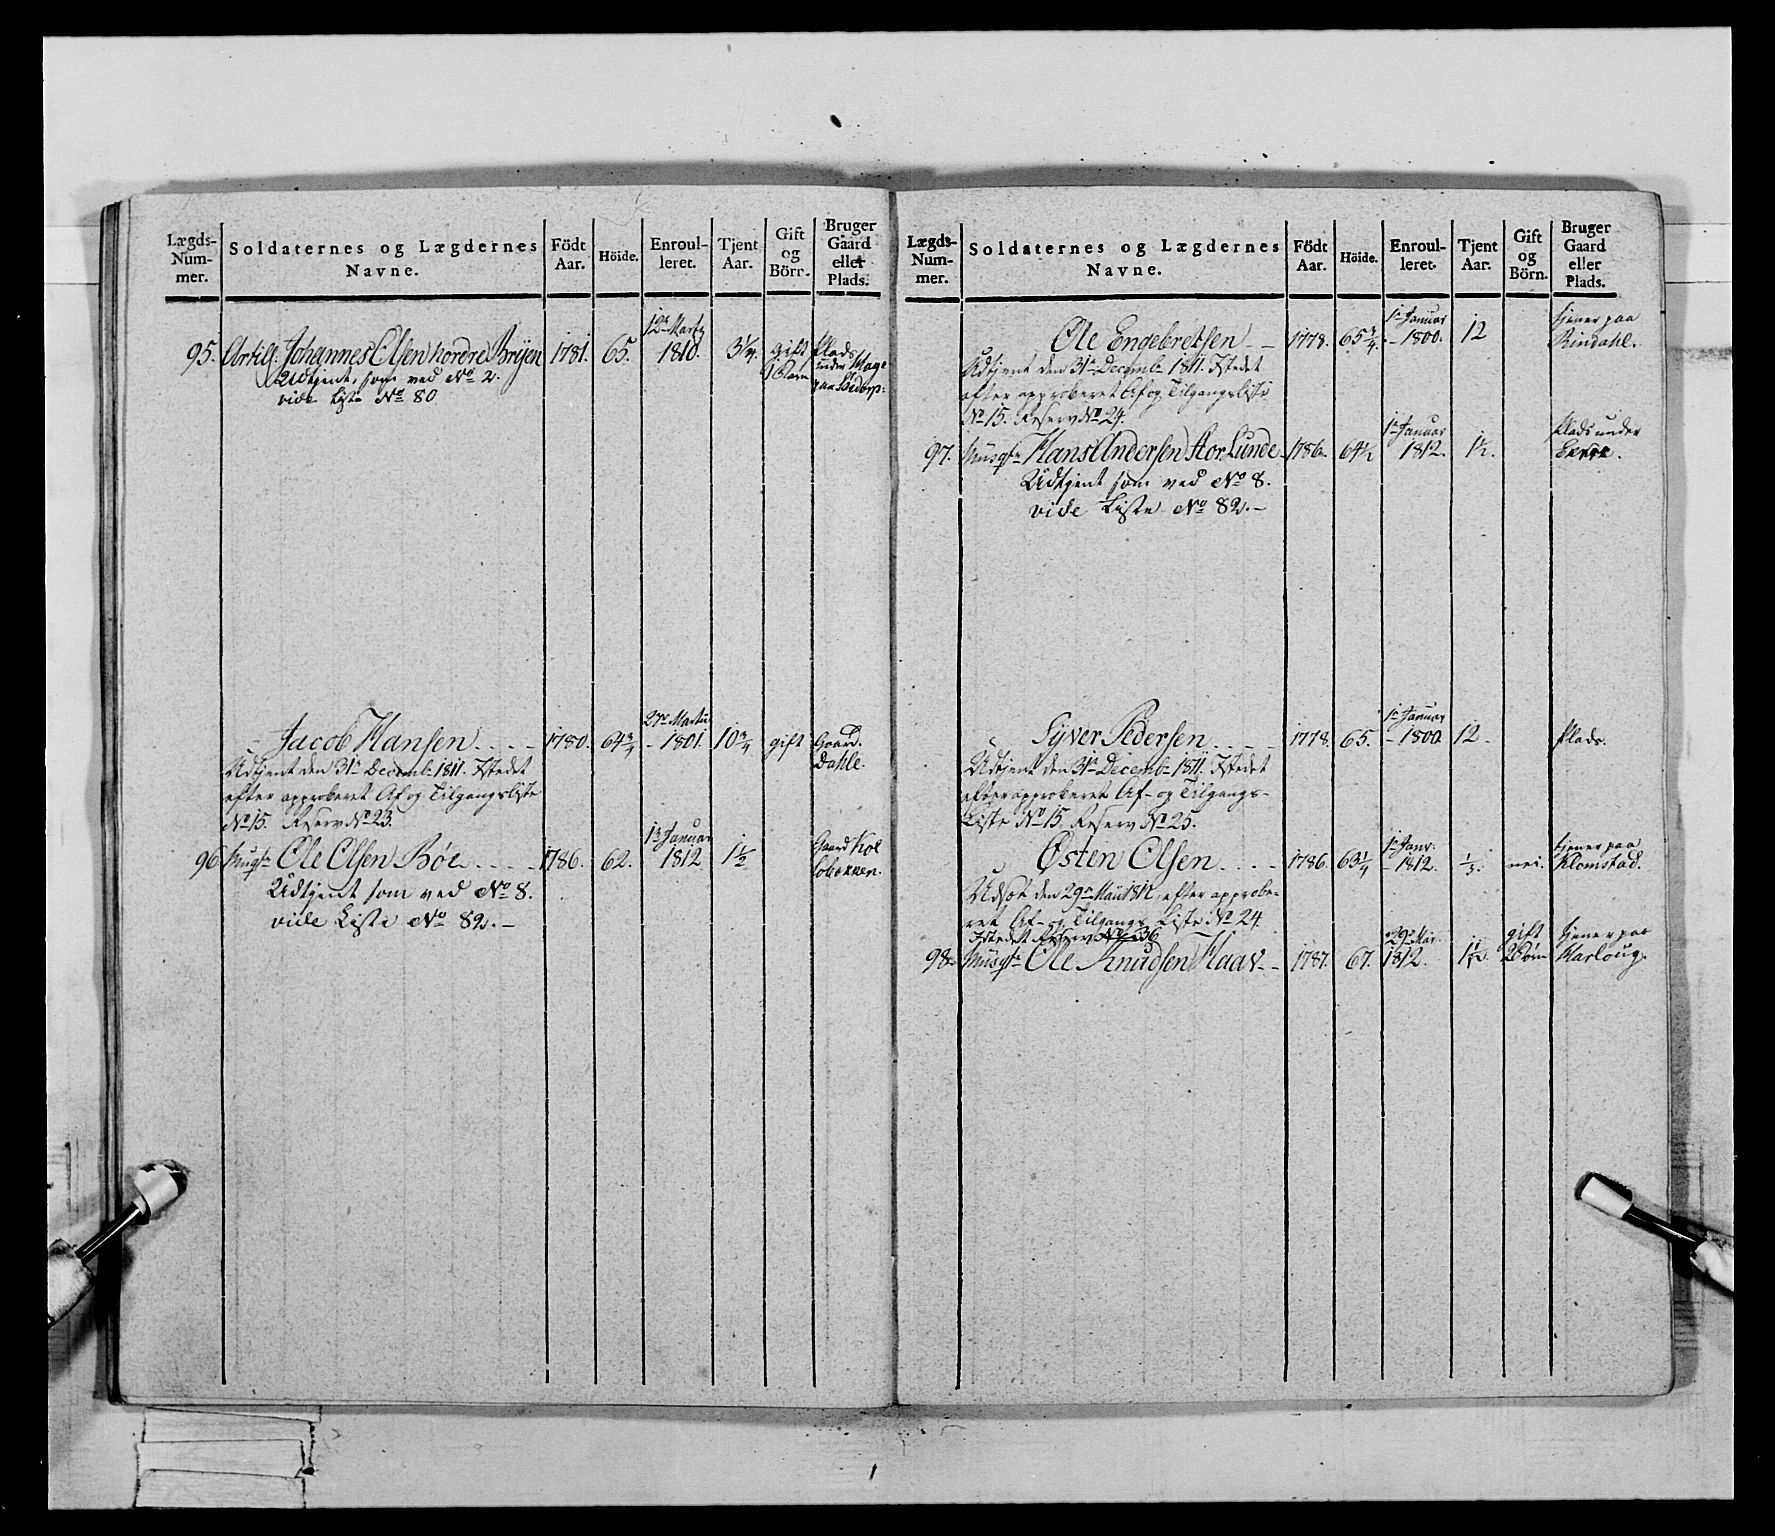 Lægds-
Num-
mer.
Soldaternes og Lægdernes
Navne.
Födt
Aar.
Höide.
Enroul-
leret.
Tjent
Aar.
Gift
og
Börn.
Bruger
Gaard
eller
Plads.
12te Marty
95. Artill: Johannes Olsen nordre Bryen 1781. 65. 1810. 3 1/4. gift Plads
Udtjent, som ved No 2. 1 Barn under
vide Liste No 80
27de Martii
Jacob Hansen 1780. 64 3/4 - 1801. 10 3/4 gift Gaard.
Udtjent den 31te Decemb: 1811. Istedet Dahle.
efter approberet Af og Tilgangsliste
No 15. Reserv No 23.
1te Januar
96 Musqt: Ole Olsen Böe 1786. 62. 1812 1 1/2 Gaard
Udtjent som ved No 8.
vide Liste No 82. -
Lægds-
Num-
mer.
Soldaternes og Lægdernes
Navne.
Födt
Aar.
Höide.
Enroul-
leret.
Tjent
Aar.
Gift
og
Börn.
Bruger
Gaard
eller
Plads.
1te Januar tjener paa
Ole Engebretsen - 1778. 65 3/4 - 1800. 12 Rindahl.
Udtjent den 31te Decemb: 1811. Istedet
efter approberet Af og Tilgangsliste
No 15. Reserv No 24.
1te Januar Plads under
97. Musqt: Hans Andersen Stor Lunde 1786. 64 1/2 1812. 1 1/2.
Udtjent som ved No 8.
vide Liste No 82. -
1te Januar
Syver Pedersen 1778. 65. - 1800 12. Plads.
Udtjent den 31te Decemb: 1811. Istedet
efter approberet Af- og Tilgangs-
Liste No 15. Reserv No 25.
1te Janr. tjener paa
Østen Olsen 1786. 63 1/4 - 1812. 1/3. nei. Klomstad.
Udsat den 29de Maii efter approbe-
ret Af- og Tilgangs Liste No 24
Istedet Reserv No 36
29de Mai. gift tjener paa
98. Musqt: Ole Knudsen Haav - 1787. 67. 1812. 2 Börn